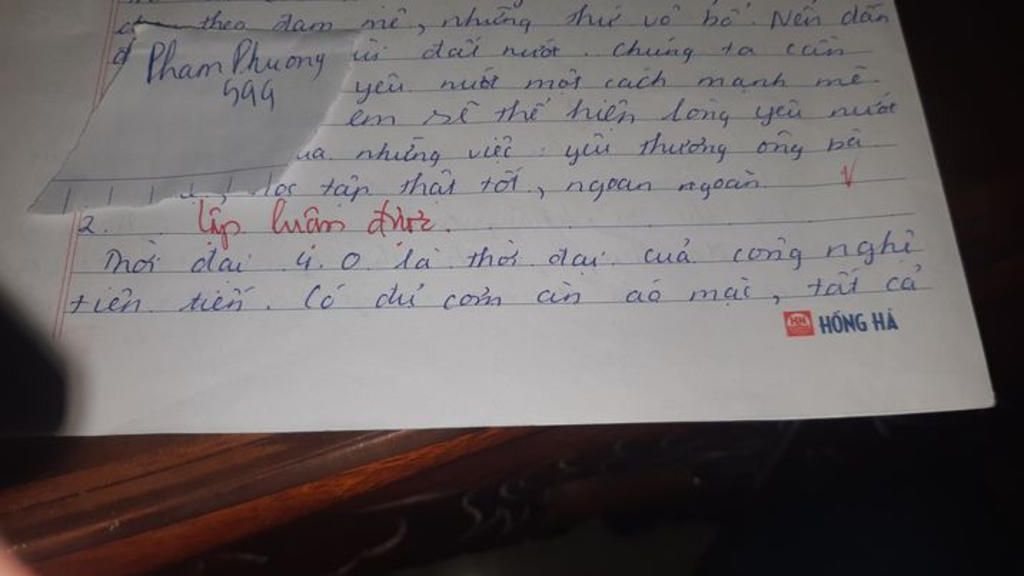 theo đam mê, những thứ vô bổ. Nên dẫn
đ
Pham Phuong
599
đất nước. Chúng ta cần
yêu nước một cách mạnh mẽ.
em sẽ thể hiện lòng yêu nước
ua những việc: yêu thương ông bà
học tập thật tốt, ngoan ngoãn.
2. lập luận được.
Thời đại 4.0 là thời đại cuả công nghệ
tiên tiến. Có đủ cơm ăn áo mặc, tất cả
HỒNG HÀ